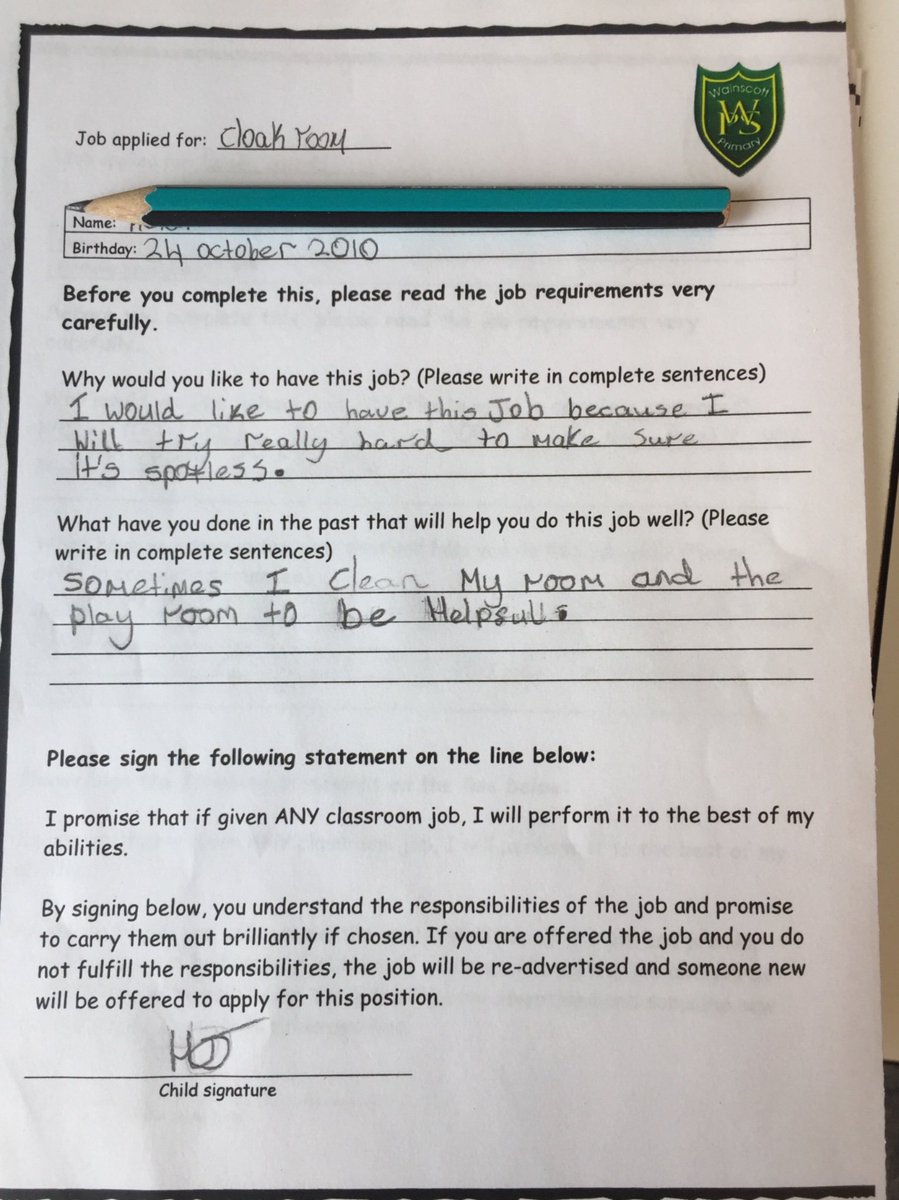 Wainscott
WPS
Primary
Job applied for: cloak room
Name:
Birthday: 24 october 2010
Before you complete this, please read the job requirements very
carefully.
Why would you like to have this job? (Please write in complete sentences)
I would like to have this Job because I
Will try really hard to make sure
it's spotless.
What have you done in the past that will help you do this job well? (Please
write in complete sentences)
Sometimes I clean My room and the
play room to be Helpfull.
Please sign the following statement on the line below:
I promise that if given ANY classroom job, I will perform it to the best of my
abilities.
By signing below, you understand the responsibilities of the job and promise
to carry them out brilliantly if chosen. If you are offered the job and you do
not fulfill the responsibilities, the job will be re-advertised and someone new
will be offered to apply for this position.
Child signature